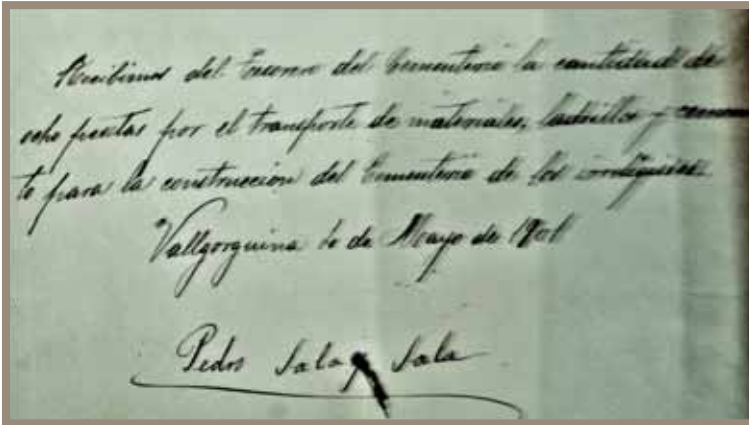 Recibimos del Tesorero del Cementerio la cantidad de
ocho pesetas por el transporte de materiales, ladrillos y cemen
to para la construccion del Cementerio de los
Vallgorguina de Mayo de 1901
Pedro Sala y Sala